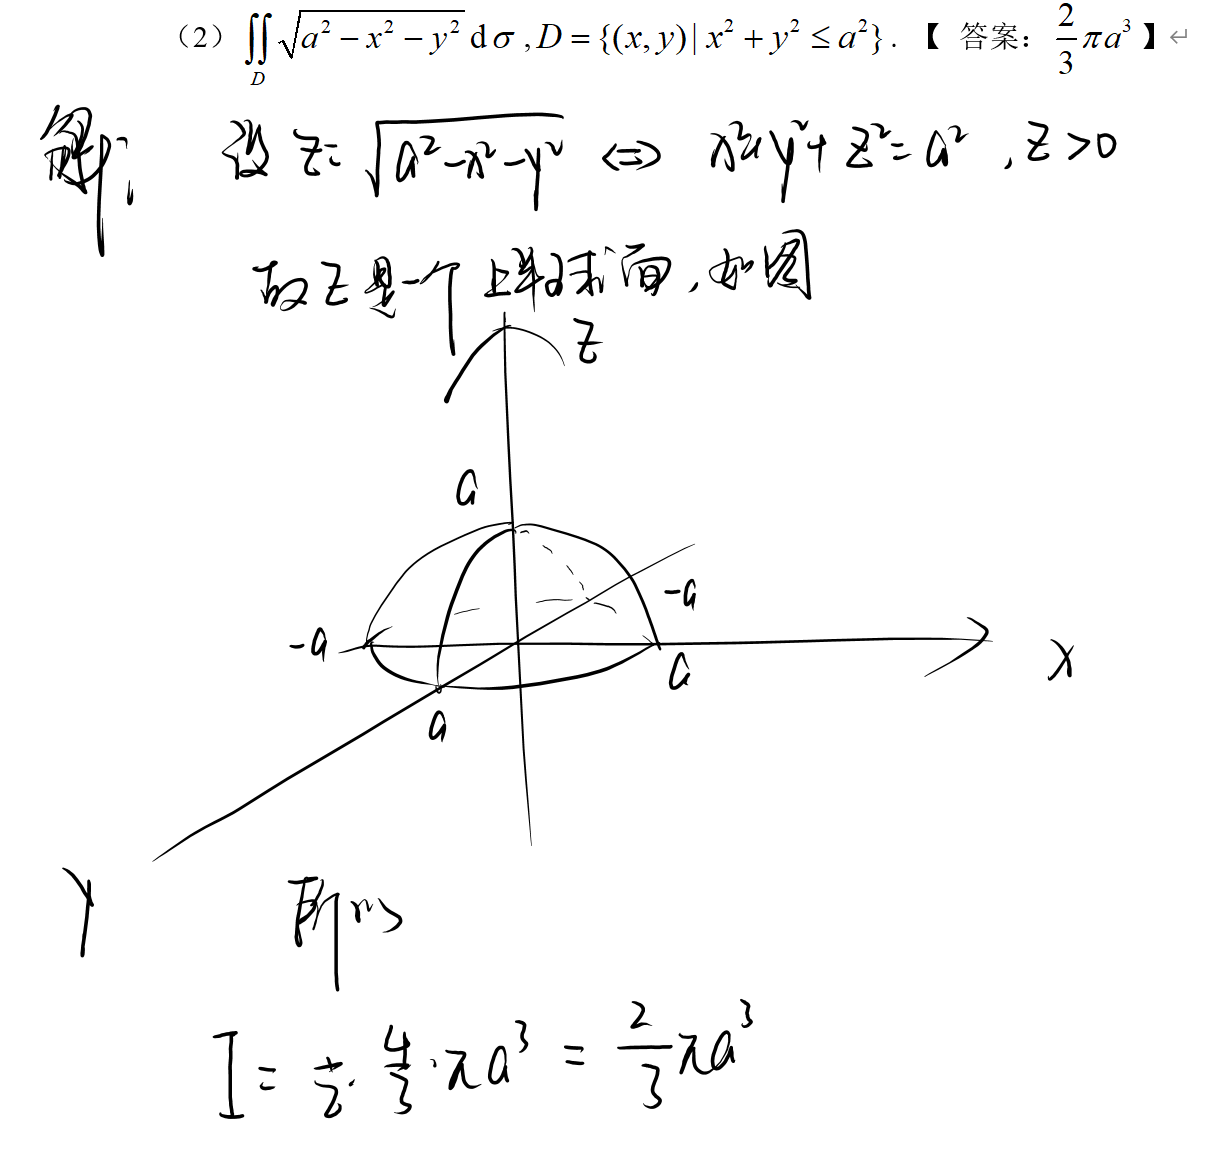 （2）∬_D √(a² − x² − y²) dσ , D = {(x, y) | x² + y² ≤ a²} . 【 答案： 2/3 πa³ 】↵
解： 设 z = √(a² − x² − y²) <=> x² + y² + z² = a² , z > 0
故 z 是一个上半球面, 如图
z
a
-a
-a
a
x
a
y
所以
I = 1/2 · 4/3 · πa³ = 2/3 πa³